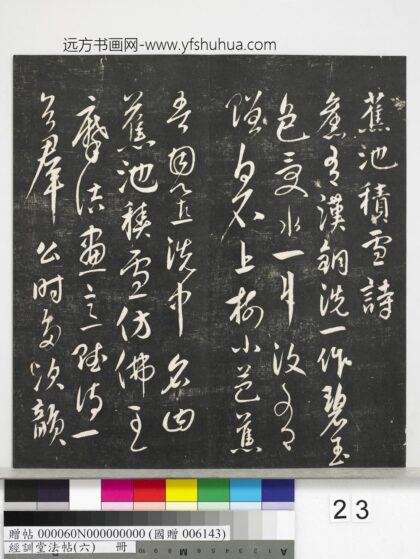 远方书画网-www.yfshuhua.com
蕉池積雪詩
舊有漢銅洗一作碧玉
色受水一斗
白石上樹小芭蕉
吾因洗中名曰
蕉池積雪仿佛王
摩詰畫意賦詩一
公時
23
贈帖 000060N000000000 (國贈 006143)
經訓堂法帖(六) 冊